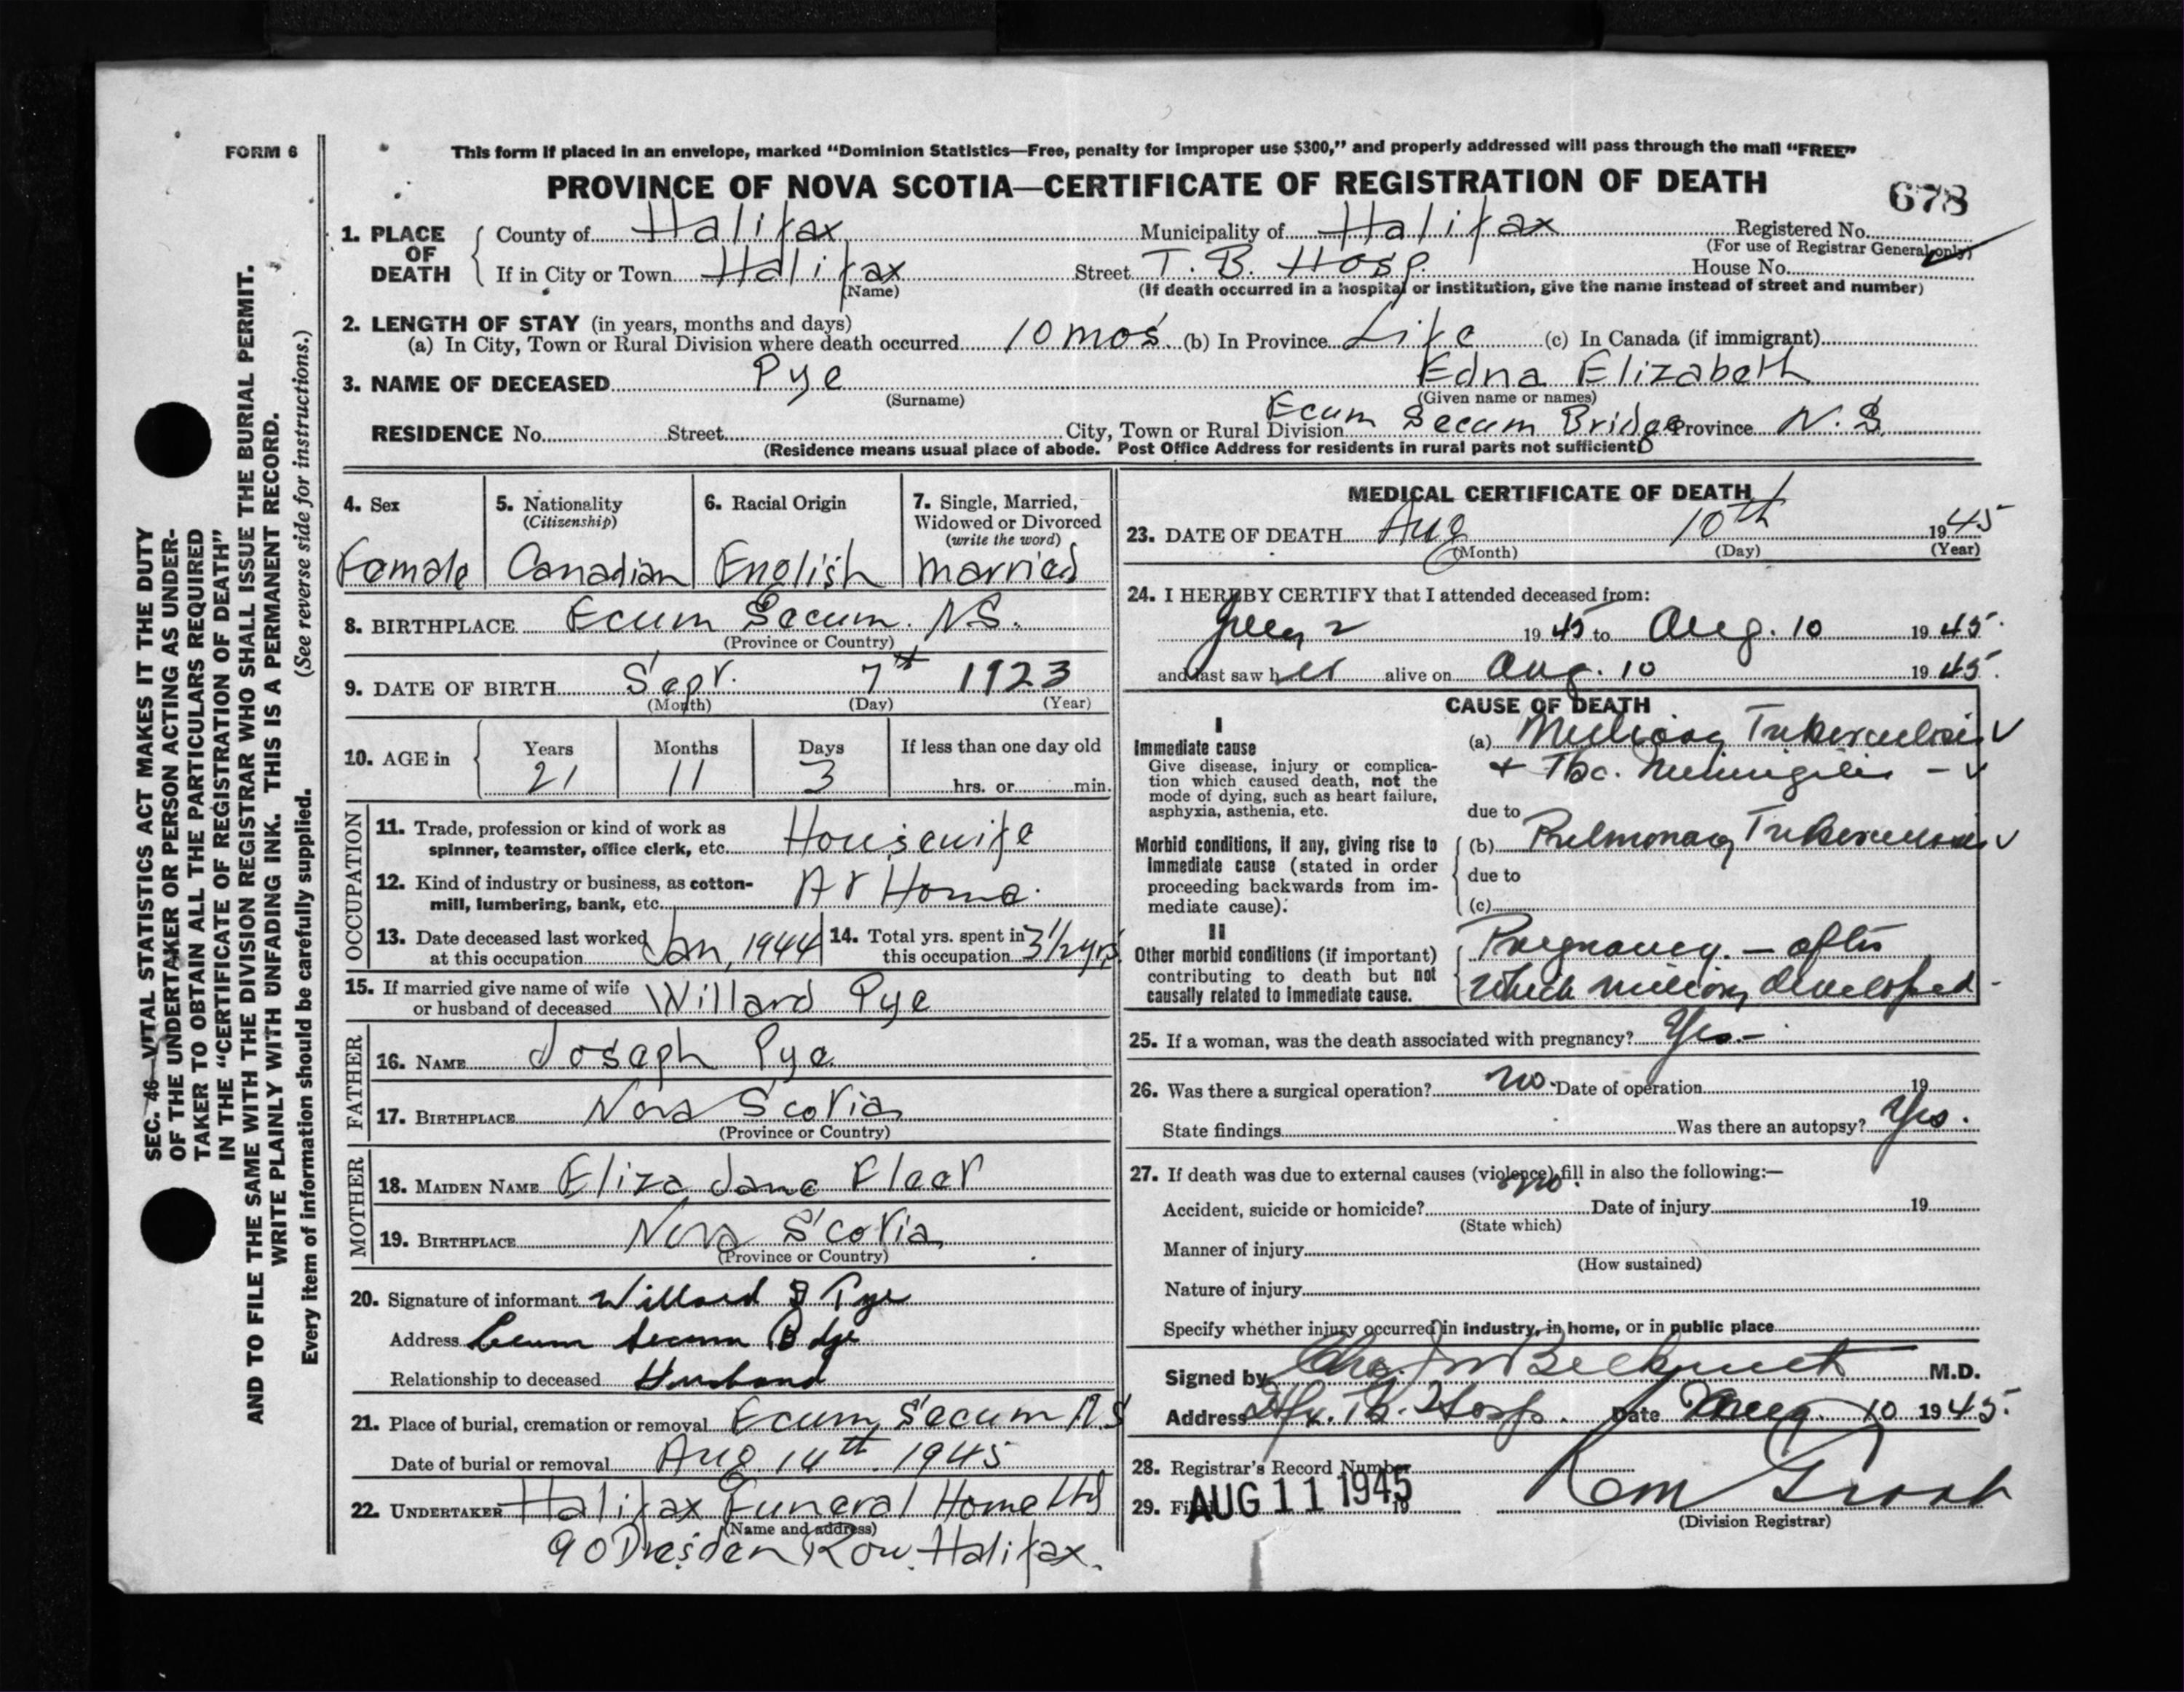 FORM 6
This form if placed in an envelope, marked "Dominion Statistics—Free, penalty for improper use $300," and properly addressed will pass through the mail "FREE"
PROVINCE OF NOVA SCOTIA—CERTIFICATE OF REGISTRATION OF DEATH
678
1. PLACE OF DEATH
County of Halifax Municipality of Halifax Registered No.
(For use of Registrar General only)
If in City or Town Halifax Street T. B. Hosp. House No.
(Name) (If death occurred in a hospital or institution, give the name instead of street and number)
2. LENGTH OF STAY (in years, months and days)
(a) In City, Town or Rural Division where death occurred 10 mos. (b) In Province Life (c) In Canada (if immigrant)
3. NAME OF DECEASED Pye Edna Elizabeth
(Surname) (Given name or names)
RESIDENCE No. Street City, Town or Rural Division Ecum Secum Bridge Province N. S.
(Residence means usual place of abode. Post Office Address for residents in rural parts not sufficient)
4. Sex
Female
5. Nationality
(Citizenship)
Canadian
6. Racial Origin
English
7. Single, Married,
Widowed or Divorced
(write the word)
Married
8. BIRTHPLACE Ecum Secum. NS.
(Province or Country)
9. DATE OF BIRTH Sept. 7th 1923
(Month) (Day) (Year)
10. AGE in
Years Months Days If less than one day old
21 11 3 hrs. or min.
OCCUPATION
11. Trade, profession or kind of work as
spinner, teamster, office clerk, etc. Housewife
12. Kind of industry or business, as cotton-
mill, lumbering, bank, etc. At Home.
13. Date deceased last worked
at this occupation Jan, 1944
14. Total yrs. spent in
this occupation 3 1/2 yrs
15. If married give name of wife
or husband of deceased Willard Pye
FATHER
16. NAME Joseph Pye.
17. BIRTHPLACE Nova Scotia
(Province or Country)
MOTHER
18. MAIDEN NAME Eliza Jane Fleet
19. BIRTHPLACE Nova Scotia
(Province or Country)
20. Signature of informant Willard Pye
Address Ecum Secum Bdge
Relationship to deceased Husband
21. Place of burial, cremation or removal Ecum Secum N.S
Date of burial or removal Aug 14th. 1945
22. UNDERTAKER Halifax Funeral Home Ltd
(Name and address)
90 Dresden Row. Halifax.
MEDICAL CERTIFICATE OF DEATH
23. DATE OF DEATH Aug 10th 1945
(Month) (Day) (Year)
24. I HEREBY CERTIFY that I attended deceased from:
2 1945 to Aug. 10 1945.
and last saw her alive on Aug. 10 1945.
CAUSE OF DEATH
I
Immediate cause
Give disease, injury or complica-
tion which caused death, not the
mode of dying, such as heart failure,
asphyxia, asthenia, etc.
(a) Milliary Tuberculosis
+ Tbc. Meningitis -
due to
Morbid conditions, if any, giving rise to
immediate cause (stated in order
proceeding backwards from im-
mediate cause).
(b) Pulmonary Tuberculosis
due to
(c)
II
Other morbid conditions (if important)
contributing to death but not
causally related to immediate cause.
Pregnancy. — after
which miliary developed -
25. If a woman, was the death associated with pregnancy? Yes. -
26. Was there a surgical operation? no. Date of operation 19
State findings Was there an autopsy? Yes.
27. If death was due to external causes (violence) fill in also the following:—
no.
Accident, suicide or homicide? Date of injury 19
(State which)
Manner of injury
(How sustained)
Nature of injury
Specify whether injury occurred in industry, in home, or in public place
Signed by M.D.
Address Hfx. Tb. Hosp. Date Aug. 10 1945.
28. Registrar's Record Number
29. Filed AUG 11 1945 19
(Division Registrar)
SEC. 46—VITAL STATISTICS ACT MAKES IT THE DUTY
OF THE UNDERTAKER OR PERSON ACTING AS UNDER-
TAKER TO OBTAIN ALL THE PARTICULARS REQUIRED
IN THE "CERTIFICATE OF REGISTRATION OF DEATH"
AND TO FILE THE SAME WITH THE DIVISION REGISTRAR WHO SHALL ISSUE THE BURIAL PERMIT.
WRITE PLAINLY WITH UNFADING INK. THIS IS A PERMANENT RECORD.
Every item of information should be carefully supplied. (See reverse side for instructions.)